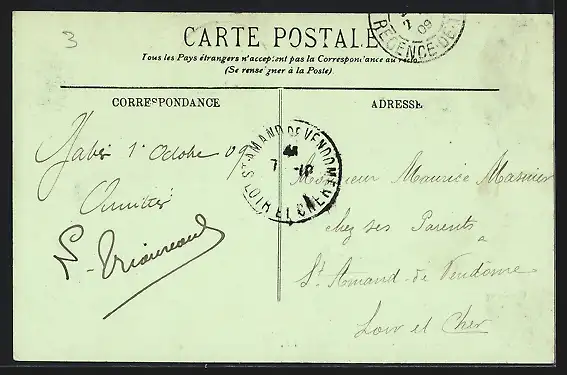 3
CARTE POSTALE
Tous les Pays étrangers n'acceptent pas la Correspondance au recto
(Se renseigner à la Poste)
2
09
REGENCE-DE-T
CORRESPONDANCE
ADRESSE
Gabès 1er Octobre 09
Amitiés
ST AMAND DE VENDOME
7 -10
LOIR ET CHER
Monsieur Maurice
chez ses Parents
à
St Amand-de Vendôme
Loir et Cher